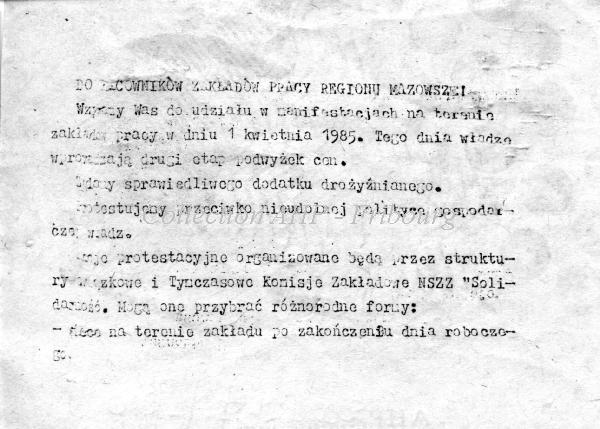 DO PRACOWNIKÓW ZAKŁADÓW PRACY REGIONU MAZOWSZE!
Wzywamy Was do udziału w manifestacjach na terenie
zakładu pracy w dniu 1 kwietnia 1985. Tego dnia władze
wprowadzają drugi etap podwyżek cen.
Żądamy sprawiedliwego dodatku drożyźnianego.
Protestujemy przeciwko nieudolnej polityce gospodar-
czej władz.
Collection AHP - Fribourg
Akcje protestacyjne organizowane będą przez struktu-
ry związkowe i Tymczasowe Komisje Zakładowe NSZZ "Soli-
darność. Mogą one przybrać różnorodne formy:
- na terenie zakładu po zakończeniu dnia robocze-
go.